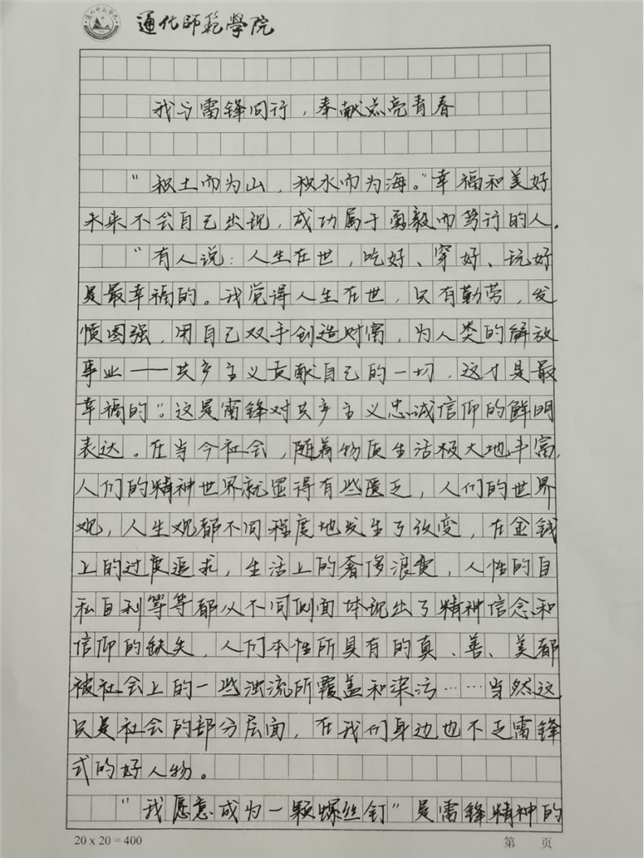 通化师范學院
我与雷锋同行，奉献点亮青春
“积土而为山，积水而为海。”幸福和美好
未来不会自己出现，成功属于勇毅而笃行的人。
“有人说：人生在世，吃好、穿好、玩好
是最幸福的。我觉得人生在世，只有勤劳，发
愤图强，用自己双手创造财富，为人类的解放
事业——共产主义贡献自己的一切，这才是最
幸福的”。这是雷锋对共产主义忠诚信仰的鲜明
表达。在当今社会，随着物质生活极大地丰富，
人们的精神世界就显得有些匮乏，人们的世界
观，人生观都不同程度地发生了改变，在金钱
上的过度追求，生活上的奢侈浪费，人性的自
私自利等等都从不同侧面体现出了精神信念和
信仰的缺失，人们本性所具有的真、善、美都
被社会上的一些浊流所覆盖和染污……当然这
只是社会的部分层面，在我们身边也不乏雷锋
式的好人物。
“我愿意成为一颗螺丝钉”是雷锋精神的
20 x 20 = 400 第 页